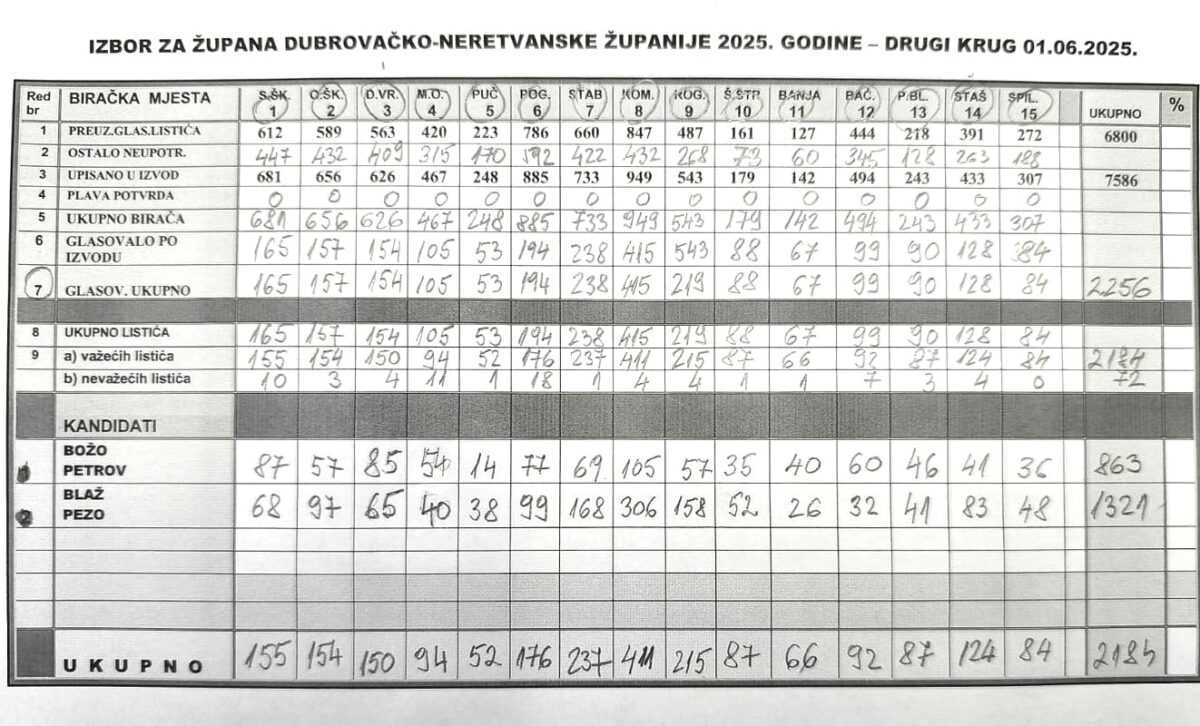 IZBOR ZA ŽUPANA DUBROVAČKO-NERETVANSKE ŽUPANIJE 2025. GODINE – DRUGI KRUG 01.06.2025.
Red br BIRAČKA MJESTA S.ŠK. 1 O.ŠK. 2 D.VR. 3 M.O. 4 PUČ 5 POG. 6 STAB 7 KOM. 8 ROG. 9 Š.STR 10 BANJA 11 BAĆ. 12 P.BL. 13 STAŠ 14 SPIL. 15 UKUPNO %
1 PREUZ.GLAS.LISTIĆA 612 589 563 420 223 786 660 847 487 161 127 444 218 391 272 6800
2 OSTALO NEUPOTR. 447 432 409 315 170 592 422 432 268 73 60 345 128 263 188
3 UPISANO U IZVOD 681 656 626 467 248 885 733 949 543 179 142 494 243 433 307 7586
4 PLAVA POTVRDA 0 0 0 0 0 0 0 0 0 0 0 0 0 0 0
5 UKUPNO BIRAČA 681 656 626 467 248 885 733 949 543 179 142 494 243 433 307
6 GLASOVALO PO IZVODU 165 157 154 105 53 194 238 415 543 88 67 99 90 128 84
7 GLASOV. UKUPNO 165 157 154 105 53 194 238 415 219 88 67 99 90 128 84 2256
8 UKUPNO LISTIĆA 165 157 154 105 53 194 238 415 219 88 67 99 90 128 84
9 a) važećih listića 155 154 150 94 52 176 237 411 215 87 66 92 87 124 84 2184
b) nevažećih listića 10 3 4 11 1 18 1 4 4 1 1 7 3 4 0 72
KANDIDATI
1 BOŽO PETROV 87 57 85 54 14 77 69 105 57 35 40 60 46 41 36 863
2 BLAŽ PEZO 68 97 65 40 38 99 168 306 158 52 26 32 41 83 48 1321
UKUPNO 155 154 150 94 52 176 237 411 215 87 66 92 87 124 84 2184